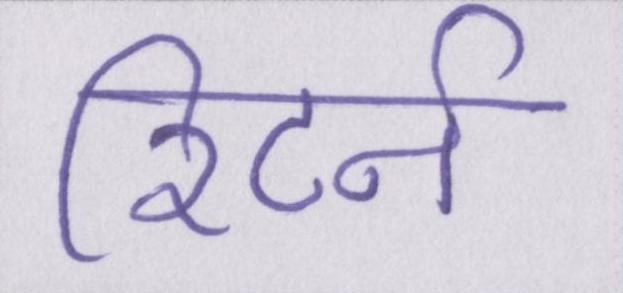 रिटर्न